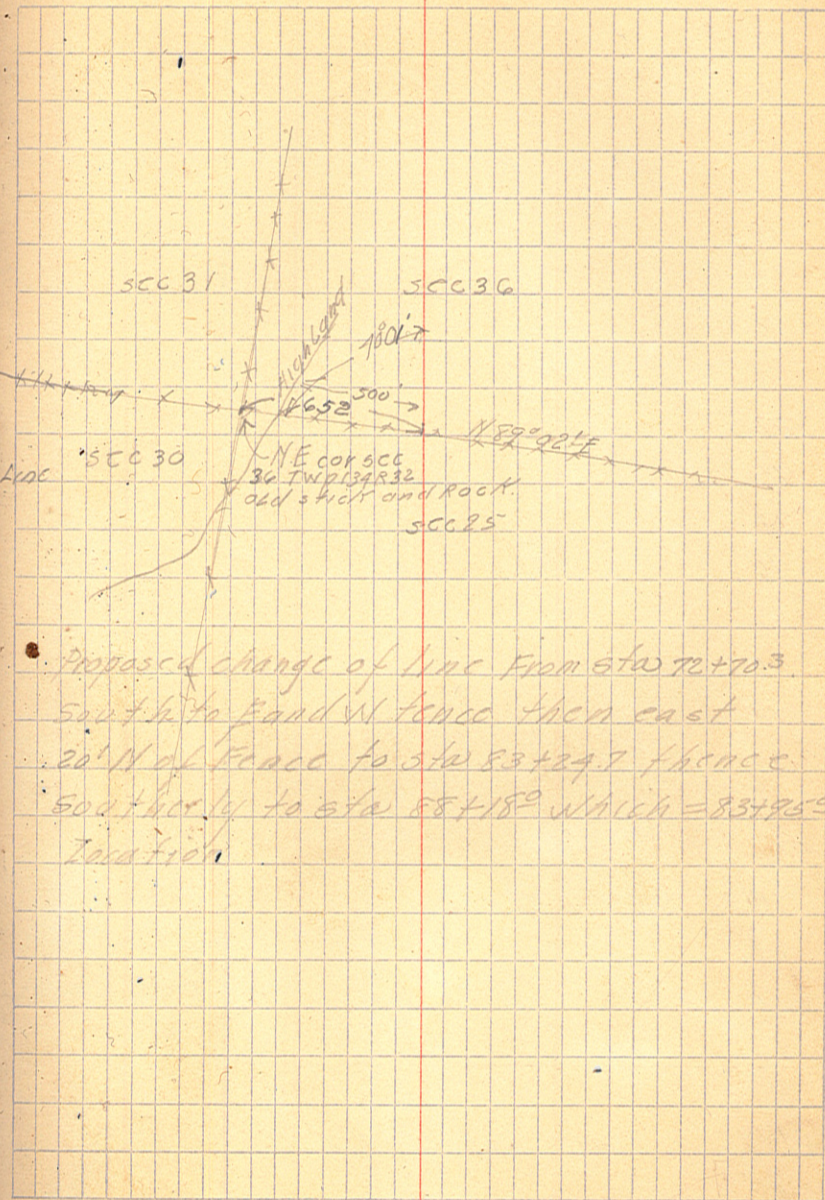 sec 31
sec 36
Highland
1°01'
500'
4652
N 89° 02' E
sec 30
Line
NE cor sec
36 TWP 134 R32
old stick and Rock.
sec 25
Proposed change of line From sta 72+70.3
South to E and W fence then east
20' N of Fence to sta 83+24.7 thence
Southerly to sta 88+18.0 which = 83+95
Location